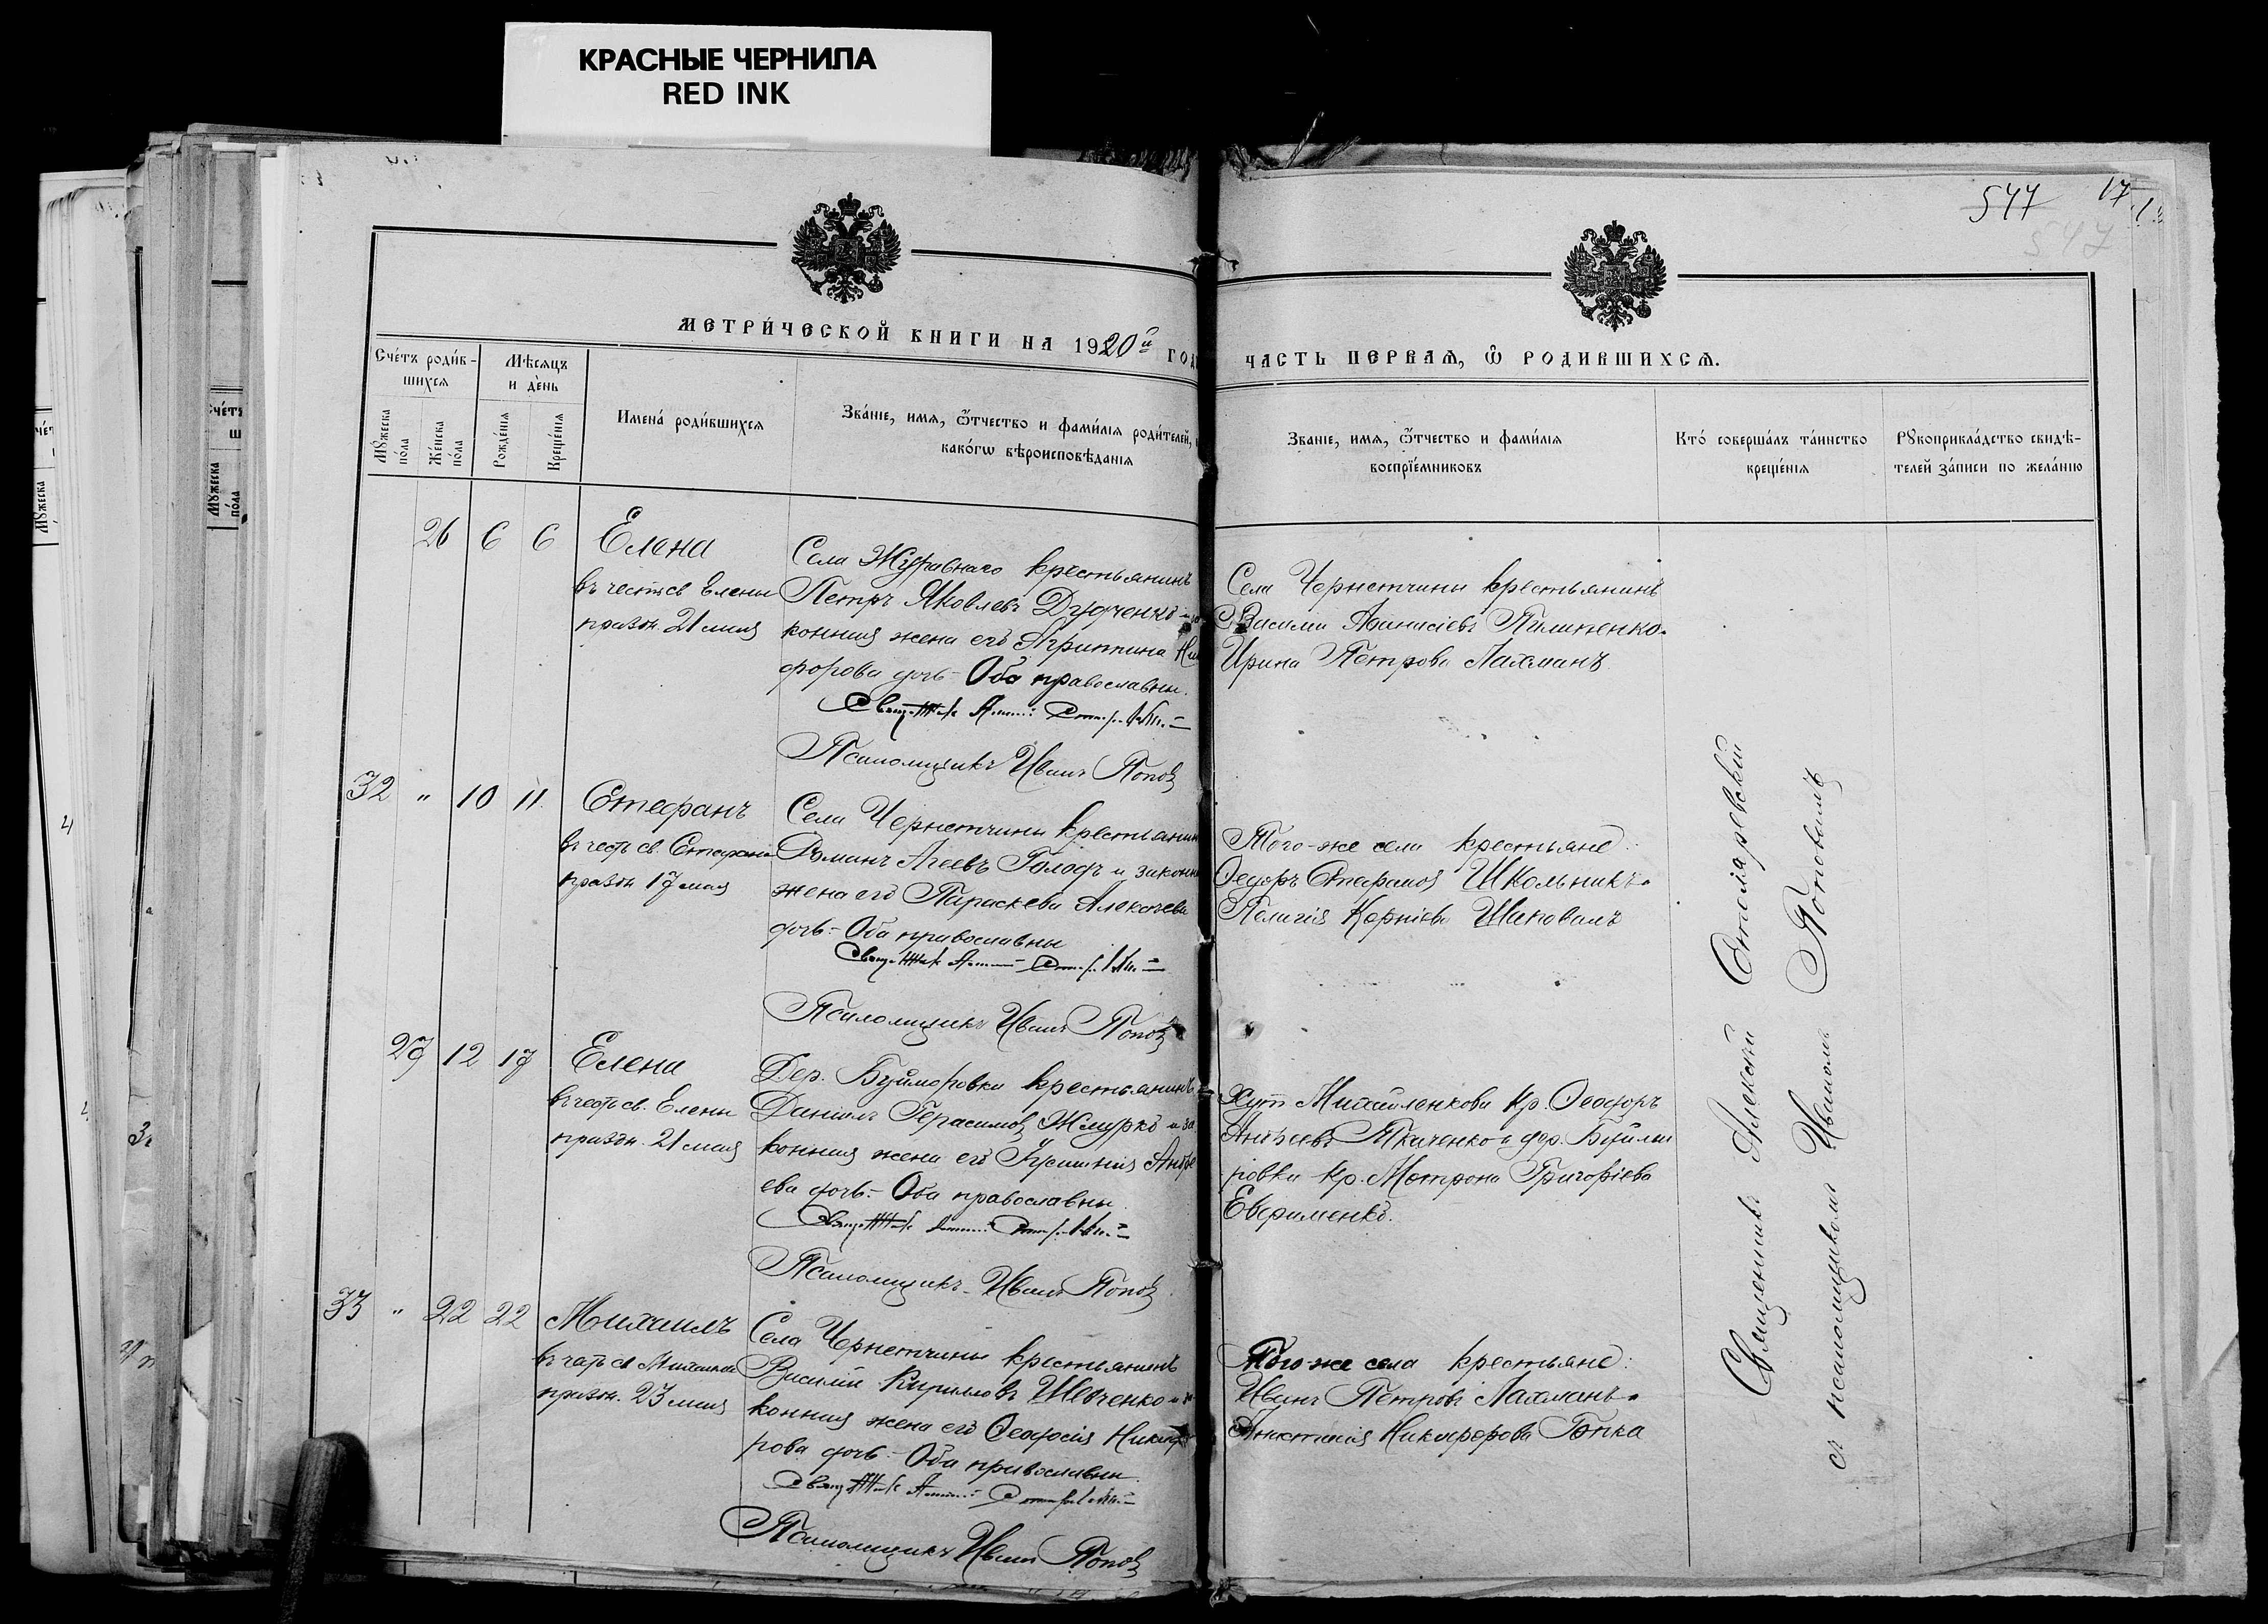 КРАСНЫЕ ЧЕРНИЛА
RED INK
547
17
547
МЕТРИ́ЧЕСКОЙ КНИГИ НА 1920й ГОД
ЧАСТЬ ПЕРВАѦ, Ѿ РОДИВШИХСѦ.
Сче́тъ роди́в-
шихсѧ
Мѣсѧцъ
и де́нь
Мꙋжеска
по́ла
Же́нска
по́ла
Рожде́нїѧ
Креще́нїѧ
Имена̀ роди́вшихсѧ
Зва́нїе, имѧ, ѿтчество и фами́лїѧ роди́телей,
како́гѡ вѣроисповѣ́данїѧ
Званїе, имѧ, ѿтчество и фами́лїѧ
воспрїе́мниковъ
Кто́ соверша́лъ та́инство
креще́нїѧ
Рꙋкоприкла́дство свидѣ-
телей за́писи по жела́нїю
26 6 6 Елена
въ честь св Елены
праздн. 21 мая
Села Журавнаго крестьянинъ
Петръ Яковлевъ Дудченко и за-
конная жена его Агрипина Ни
форова дочь - Оба православны.
Псаломщикъ Иванъ Попов
Села Чернетчины крестьянинъ
Василій Афанасіевъ Пилипенко.
Ирина Петрова Лахманъ
32 " 10 11 Стефанъ
въ честь св. Стефана
праздн 17 мая
Села Чернетчины крестьянин
Романъ Агеевъ Голодъ и законн
жена его Параскева Алексеева
дочь - Оба православны
Псаломщикъ Иванъ Попов
Того-же села крестьяне:
Ѳедоръ Стефанов Школьникъ
Пелагія Корніева Шаповалъ
27 12 17 Елена
въ честь св. Елены
праздн. 21 мая
Дер. Буймеровки крестьянинъ
Даніилъ Герасимов Жмурко и за
конная жена его Андре
ева дочь - Оба православны.
Псаломщикъ Иванъ Попов
Хут Михайленкова кр. Ѳеодоръ
Ткаченко и дер. Буйме
ровки кр. Матрона Григоріева
Евфименко.
33 " 22 22 Михаилъ
въ честь св Михаила
праздн. 23 мая
Села Чернетчины крестьянинъ
Василій Кириллов Шевченко и за
конная жена его Ѳеодосія Никифо
рова дочь - Оба православны.
Псаломщикъ Иванъ Попов
Того-же села крестьяне:
Иванъ Петровъ Лахманъ
Анастасія Никифорова Бойка
Священникъ Алексѣй Столяревскій
съ псаломщикомъ Иваномъ Поповымъ